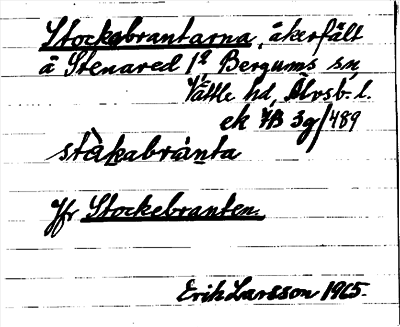 Stockabrantarna, åkerfält
å Stenared 1² Bergums sn,
Vättle hd, Älvsb. l.
ek 7B 3g/489
ståkabránta
Jfr Stockebranten.
Erik Larsson 1965.